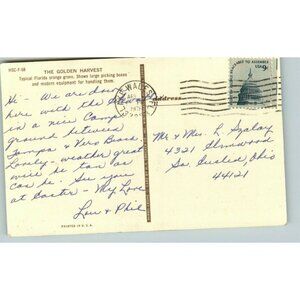 HSC-F-98
THE GOLDEN HARVEST
Typical Florida orange grove. Shown large picking boxes
and modern equipment for handling them.
Hi - We are down
here with the
in a nice Camp
ground between
Tampa & Vero Beach
Lovely - weather great
we'll be tan as
can be. See you
at Easter - My Love
Lou & Phil
PRINTED IN U.S.A.
Address
TO ASSEMBLE
USA 9c
Mr & Mrs. R. Szalay
4321 Elmwood
So. Euclid, Ohio
44121